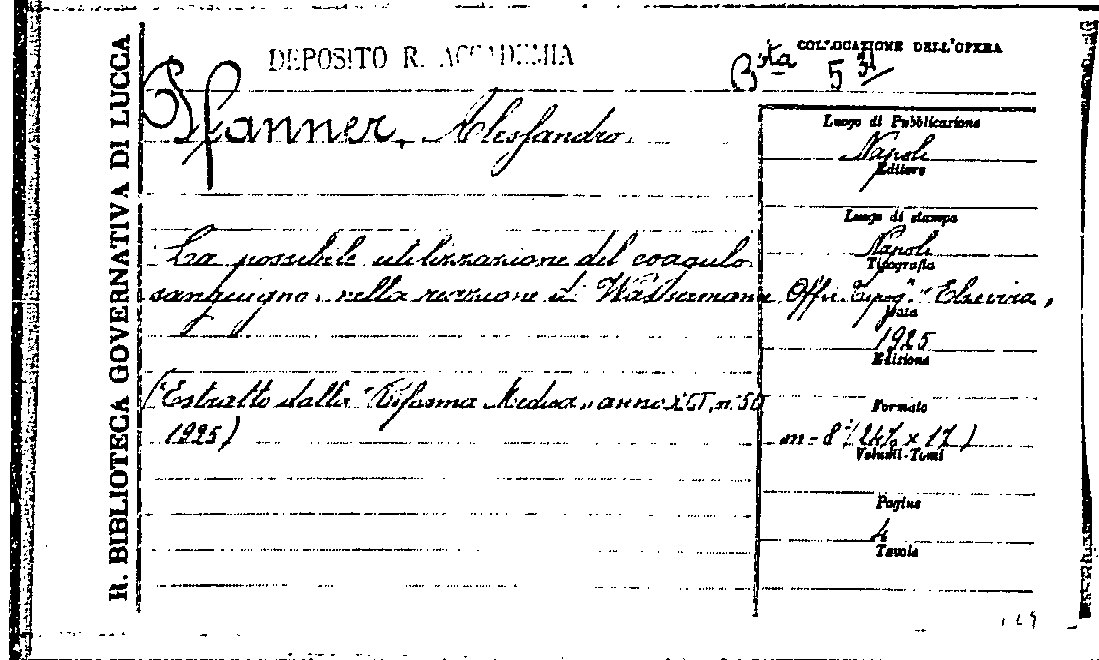 R. BIBLIOTECA GOVERNATIVA DI LUCCA
DEPOSITO R. ACCADEMIA
COLLOCAZIONE DELL'OPERA
Bsta 5 31
Pfanner, Alessandro.
La possibile utilizzazione del coagulo
sanguigno nella reazione di Wassermann
(Estratto dalla "Riforma Medica" anno XLI, n. 50
1925)
Luogo di Pubblicazione
Napoli
Editore
Luogo di stampa
Napoli
Tipografia
Offic. Tipog. "Elzevira"
Data
1925
Edizione
Formato
in-8° (24½ x 17)
Volumi-Tomi
Pagine
4
Tavole